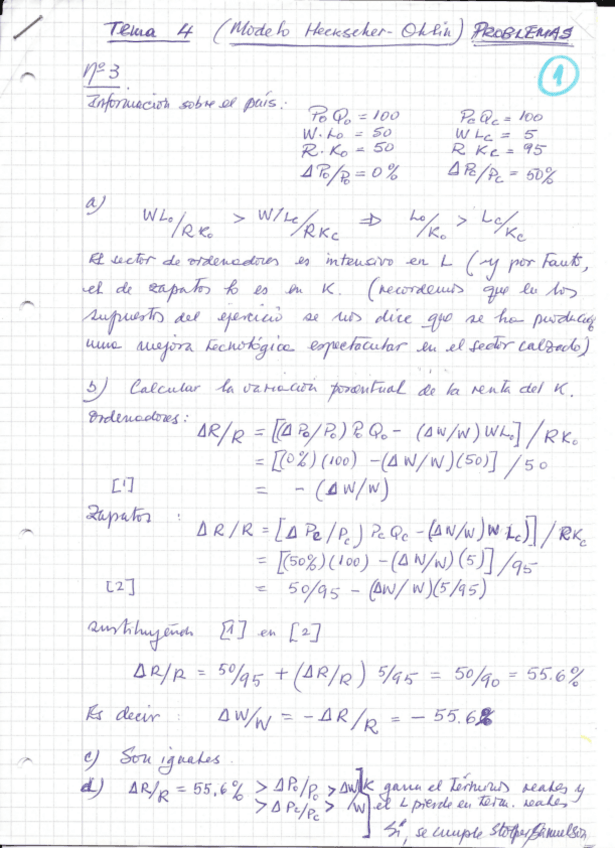 Tema 4 (Modelo Heckscher-Ohlin) PROBLEMAS
1
Nº 3
Información sobre el país:
P₀Q₀ = 100 PcQc = 100
W·L₀ = 50 WLc = 5
R·K₀ = 50 R Kc = 95
ΔP₀/P₀ = 0% ΔPc/Pc = 50%
a)
WL₀/RK₀ > W/Lc/RKc ⇒ L₀/K₀ > Lc/Kc
El sector de ordenadores es intensivo en L (y por tanto,
el de zapatos lo es en K. (recordemos que en los
supuestos del ejercicio se nos dice que se ha producido
una mejora tecnológica espectacular en el sector calzado)
b) Calcular la variación porcentual de la renta del K.
Ordenadores:
ΔR/R = [(ΔP₀/P₀) P₀Q₀ - (ΔW/W) WL₀] / RK₀
= [(0%)(100) - (ΔW/W)(50)] / 50
[1] = - (ΔW/W)
Zapatos :
ΔR/R = [ΔPc/Pc) PcQc - (ΔW/W) W Lc)] / RKc
= [(50%)(100) - (ΔW/W)(5)] / 95
[2] = 50/95 - (ΔW/W)(5/95)
sustituyendo [1] en [2]
ΔR/R = 50/95 + (ΔR/R) 5/95 = 50/90 = 55.6%
Es decir : ΔW/W = - ΔR/R = - 55.6%
c) Son iguales.
d) ΔR/R = 55,6% > ΔP₀/P₀ > ΔW K gana el términos reales y
> ΔPc/Pc > /W el L pierde en term. reales
Sí, se cumple Stolper Samuelson